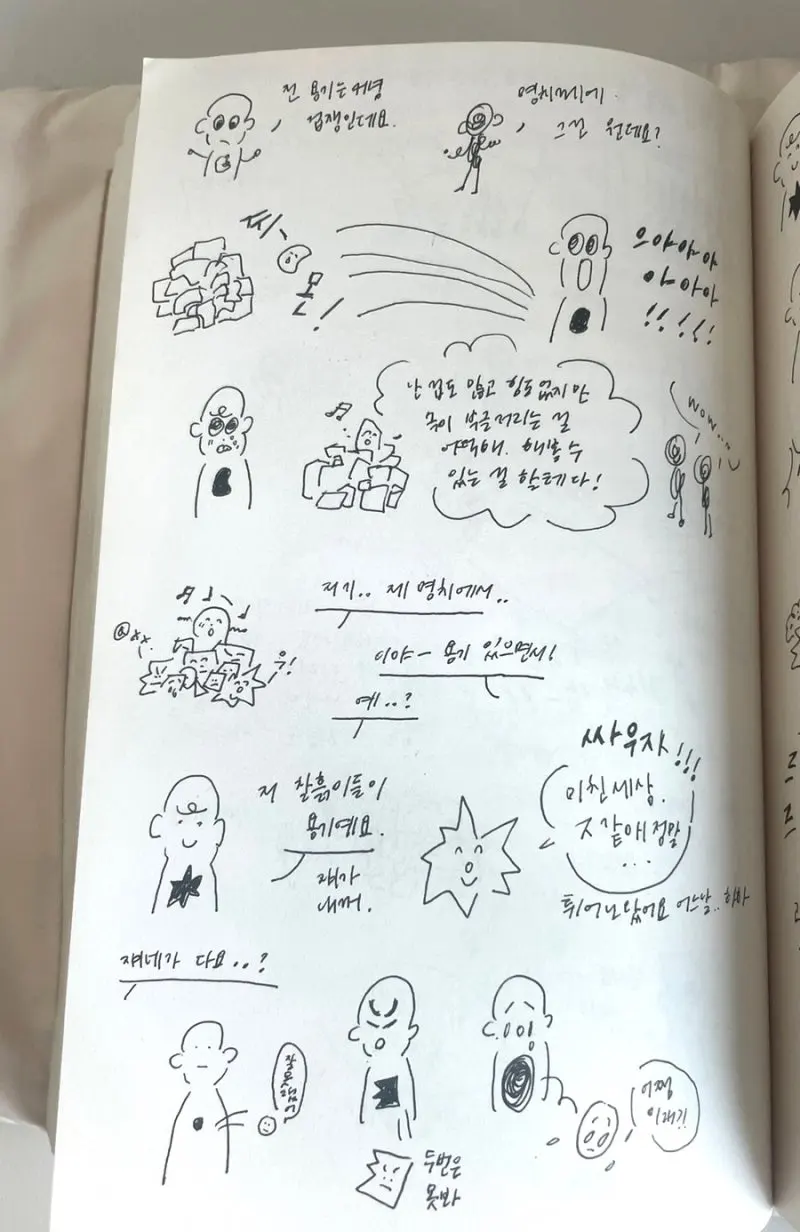 전 용기는커녕
겁쟁인데요.
명치께에
그건 뭔데요?
찌-
몬!
으아아아
아아아
!!!!!
난 겁도 많고 힘도 없지만
속이 부글거리는 걸
어떡해. 해볼 수
있는 걸 할테다!
wow...
저기.. 제 명치에서..
이야- 용기 있으면서!
예..?
우!
저 찰흙이들이
용기예요.
쟤가
내꺼.
싸우자!!!
미친세상.
ㅈ같애 정말
...
튀어나왔어요 어느날..
쟤네가 다요..?
두번은
못봐
어쩜
이래?!